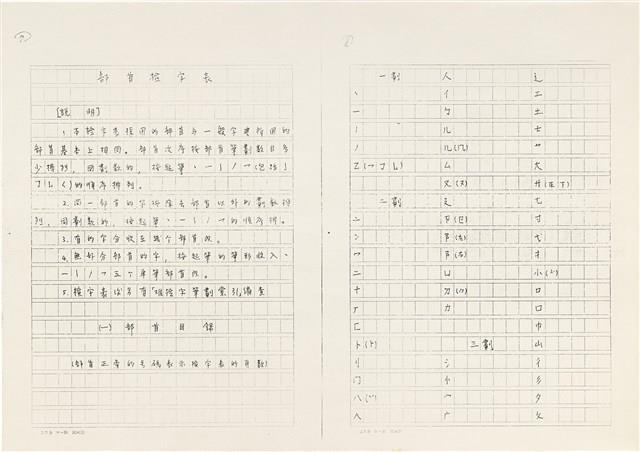 部首檢字表
[說明]
1. 本檢字表採用的部首與一般字典所用的
部首基本上相同。部首次序按部首筆劃數目多
少排列,同劃數的,按起筆、一丨丿
的順序排列。
2. 同一部首的字按除去部首以外的劃數排
列,同劃數的,按起筆、一丨丿乛的順序排。
3. 有的字分收在幾個部首內。
4. 無部分部首的字,按起筆的筆形收入、
一丨丿乛五個單筆部首內。
5. 檢字表後另有「难檢字筆劃索引」備查
(一) 部首目錄
(部首正旁的号碼表示檢字表的頁數)
一劃
丶
一
丨
丿
二劃
亠
冫
二
十
厂
匚
卜
刂
冂
八
人
人
亻
勹
儿
几
厶
又
廴
卩
阝(左)
阝(右)
凵
刀
力
三劃
氵
忄
宀
广
辶
工
土
士
艹
大
廾
尢
寸
弋
扌
小
口
囗
巾
山
彳
彡
夕
夂